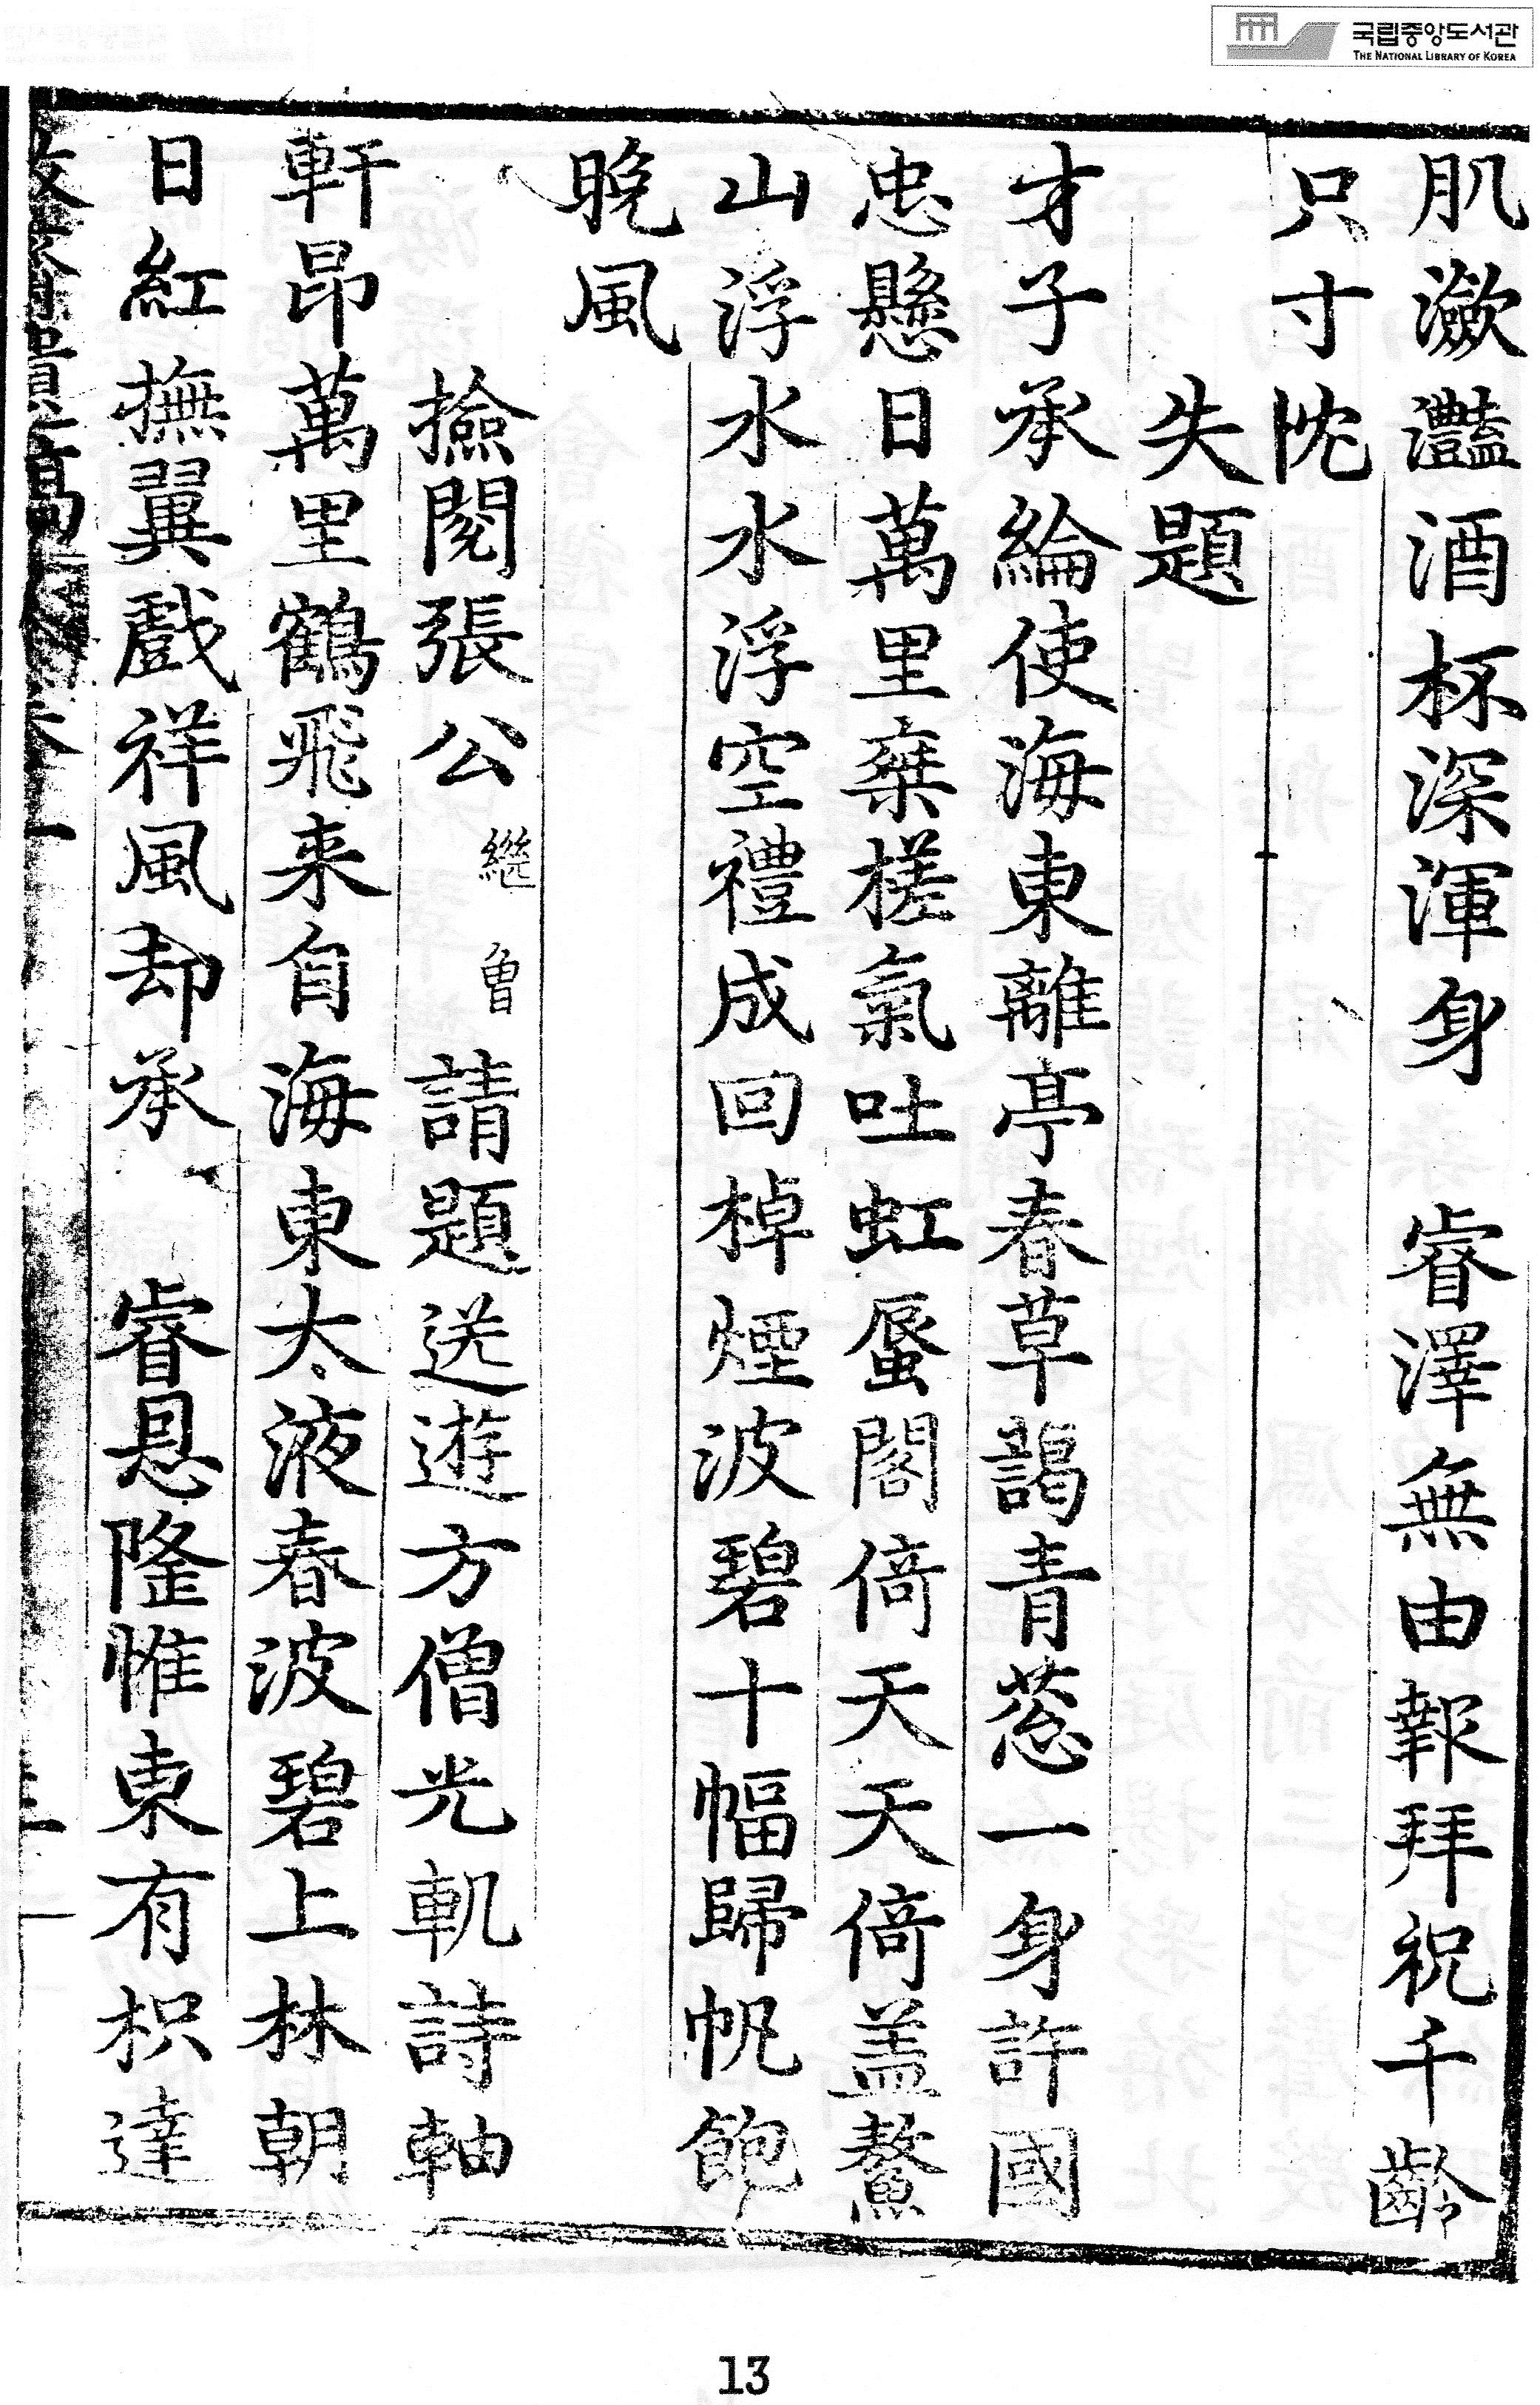 국립중앙도서관
THE NATIONAL LIBRARY OF KOREA
肌瀲灩酒杯深渾身 睿澤無由報拜祝千齡
只寸忱
失題
才子承綸使海東離亭春草謁青葱一身許國
忠懸日萬里棄槎氣吐虹蜃閣倚天天倚盖鰲
山浮水水浮空禮成回棹煙波碧十幅歸帆飽
晩風
撿閱張公繼曾請題送遊方僧光軏詩軸
軒昂萬里鶴飛来自海東太液春波碧上林朝
日紅撫翼戲祥風却承 睿恩隆惟東有枳達
13